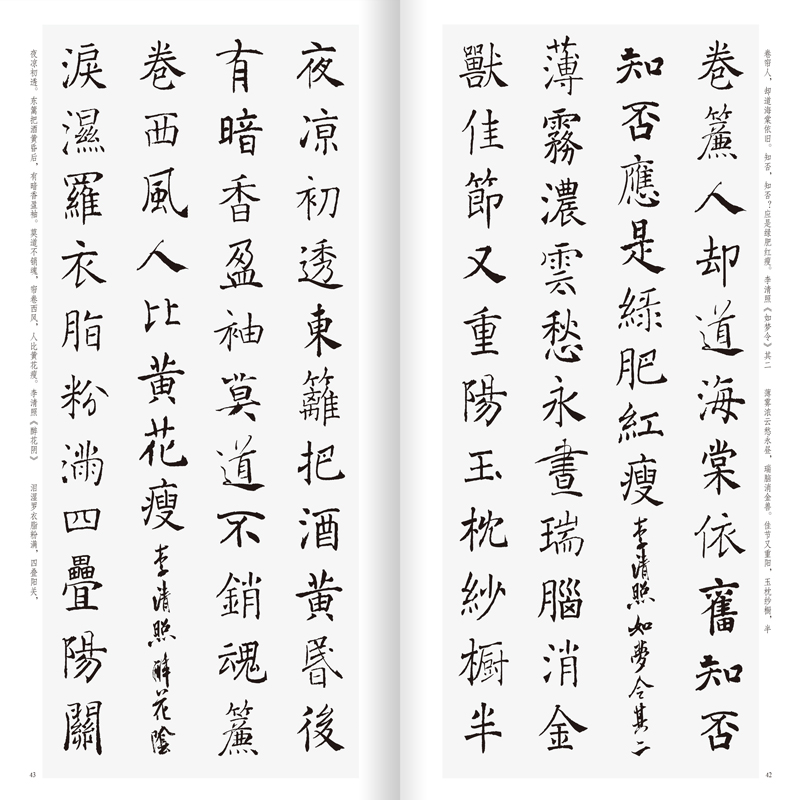 卷帘人，却道海棠依旧。知否，知否？应是绿肥红瘦。李清照《如梦令》其二　薄雾浓云愁永昼，瑞脑消金兽。佳节又重阳，玉枕纱橱，半
卷簾人却道海棠依舊知否
知否應是綠肥紅瘦 李清照如夢令其二
薄霧濃雲愁永晝瑞腦消金
獸佳節又重陽玉枕紗橱半
42
夜凉初透東籬把酒黄昏後
有暗香盈袖莫道不銷魂簾
卷西風人比黄花瘦 李清照醉花陰
淚濕羅衣脂粉滿四疊陽關
夜凉初透。东篱把酒黄昏后，有暗香盈袖。莫道不销魂，帘卷西风，人比黄花瘦。李清照《醉花阴》　泪湿罗衣脂粉满，四叠阳关，
43